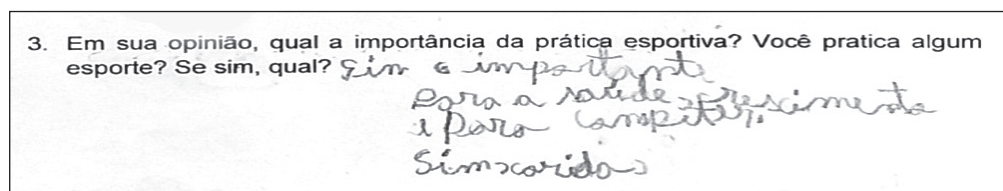 3. Em sua opinião, qual a importância da prática esportiva? Você pratica algum
esporte? Se sim, qual? Sim e importante
para a saúde, crescimento
i para competir,
Sim corida